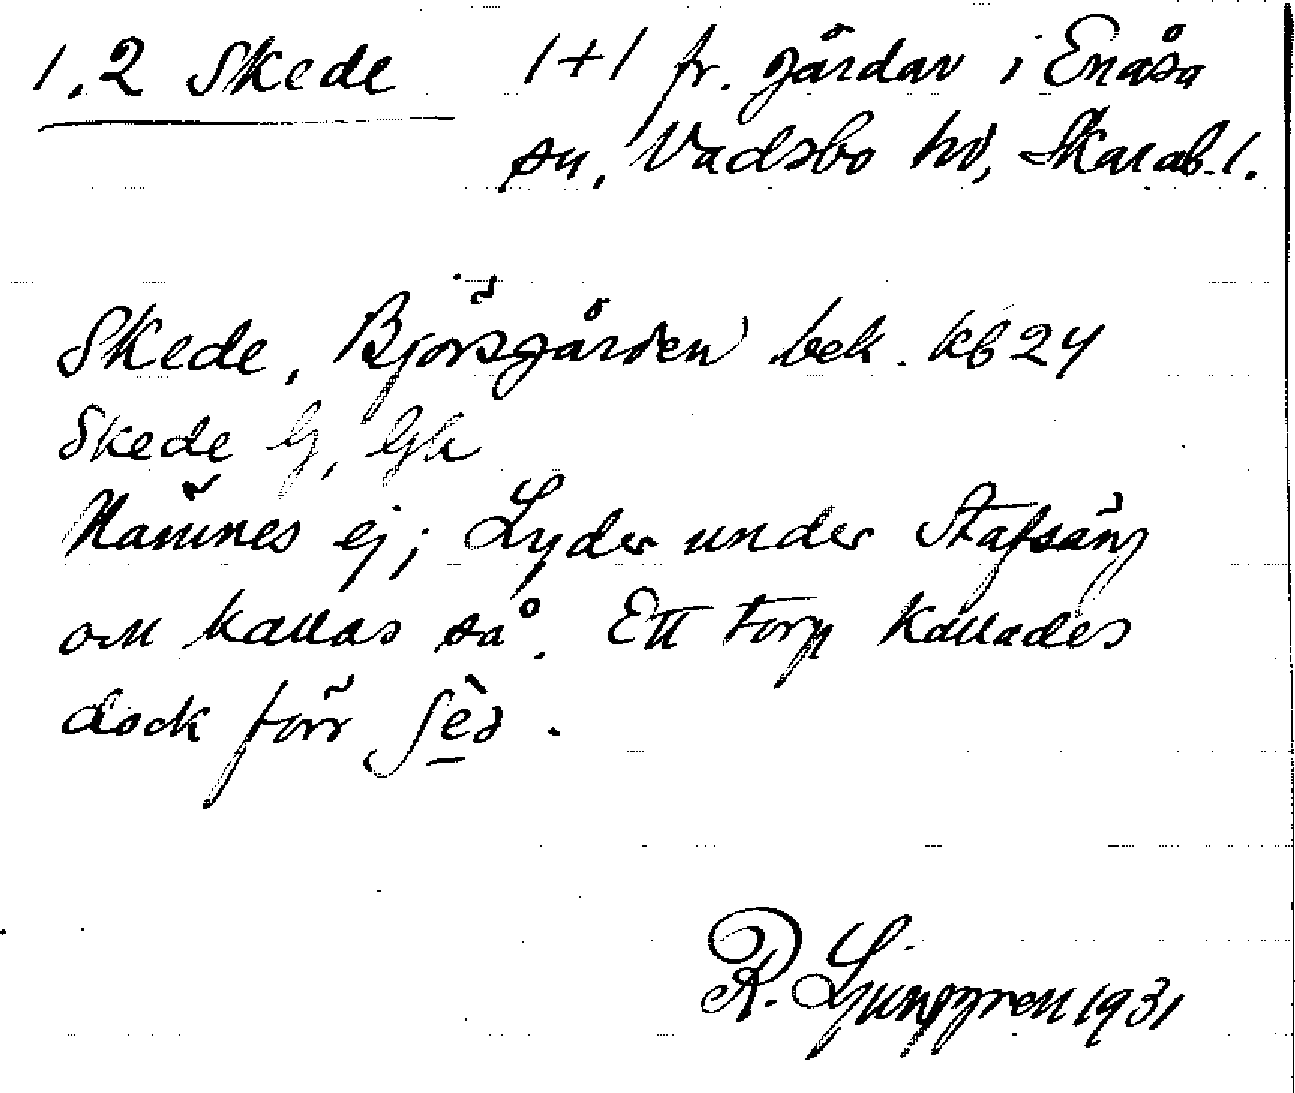 1.2 Skede 1+1 fr. gårdar i Enåsa
sn, Vadsbo hd, Skarab. l.
Skede, Björsgården bek. kb 24
Skede G, Gk
Nämnes ej; Lyder under Stafsäng
och kallas så. Ett torp kallades
dock förr ʃèd.
R. Ljunggren 1931